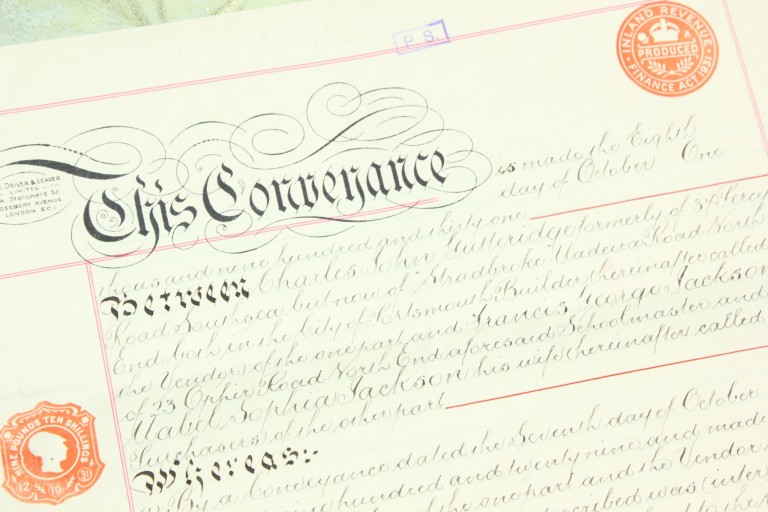 P. S.
INLAND REVENUE
PRODUCED
FINANCE ACT 1931
DRIVER & LEAVER
LIMITED
Stationers, &c.
ROSEBERY AVENUE
LONDON. E.C.1
This Conveyance is made the Eighth
day of October One
thousand nine hundred and thirty one
Between Charles John Gutteridge formerly of 37 Percy
Road Southsea but now of "Stradbroke" Madeira Road North
End both in the City of Portsmouth Builder (hereinafter called
the Vendor) of the one part and Francis George Jackson
of 23 Ophir Road North End aforesaid Schoolmaster and
Mabel Sophia Jackson his wife (hereinafter called
Purchasers) of the other part
Whereas:-
By a Conveyance dated the Seventh day of October
nine hundred and twenty nine and made
of the one part and the Vendor
described was (inter
NINE POUNDS TEN SHILLINGS
12 10 31